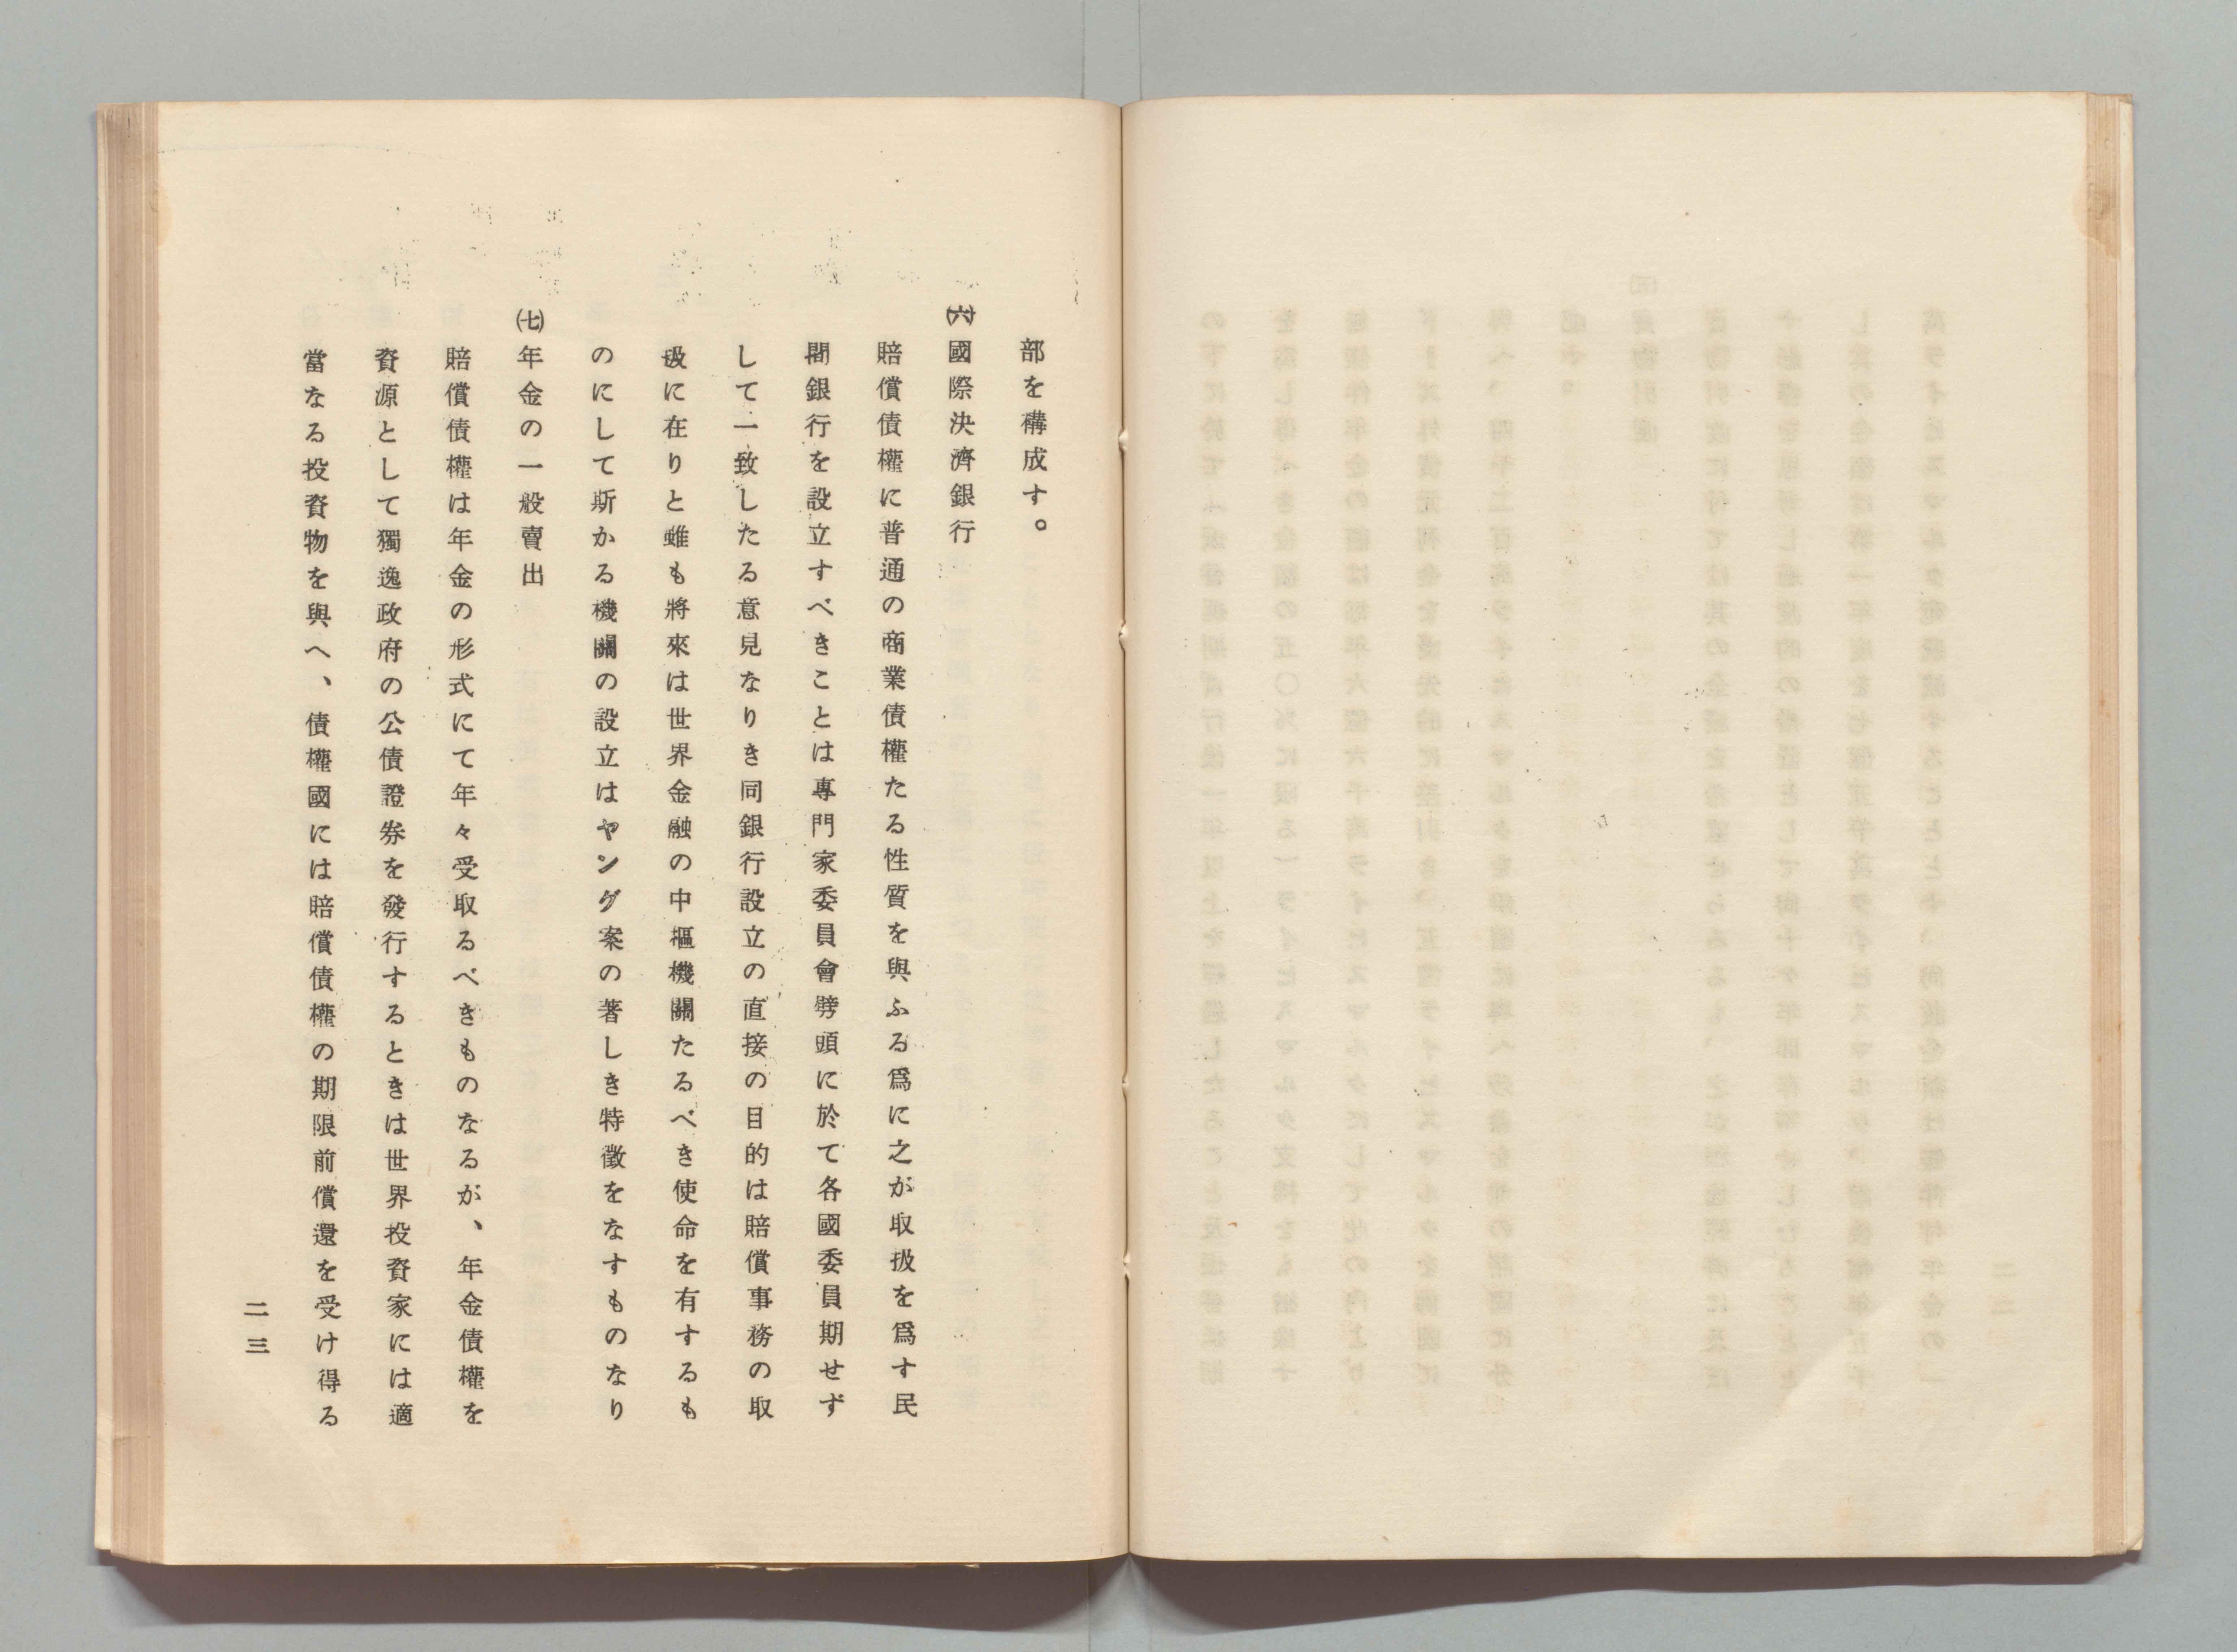 部を構成す。
㈥國際決濟銀行
賠償債權に普通の商業債權たる性質を與ふる爲に之が取扱を爲す民
間銀行を設立すべきことは專門家委員會劈頭に於て各國委員期せず
して一致したる意見なりき同銀行設立の直接の目的は賠償事務の取
扱に在りと雖も將來は世界金融の中樞機關たるべき使命を有するも
のにして斯かる機關の設立はヤング案の著しき特徴をなすものなり
㈦年金の一般賣出
賠償債權は年金の形式にて年々受取るべきものなるが、年金債權を
資源として獨逸政府の公債證券を發行するときは世界投資家には適
當なる投資物を與へ、債權國には賠償債權の期限前償還を受け得る
二三